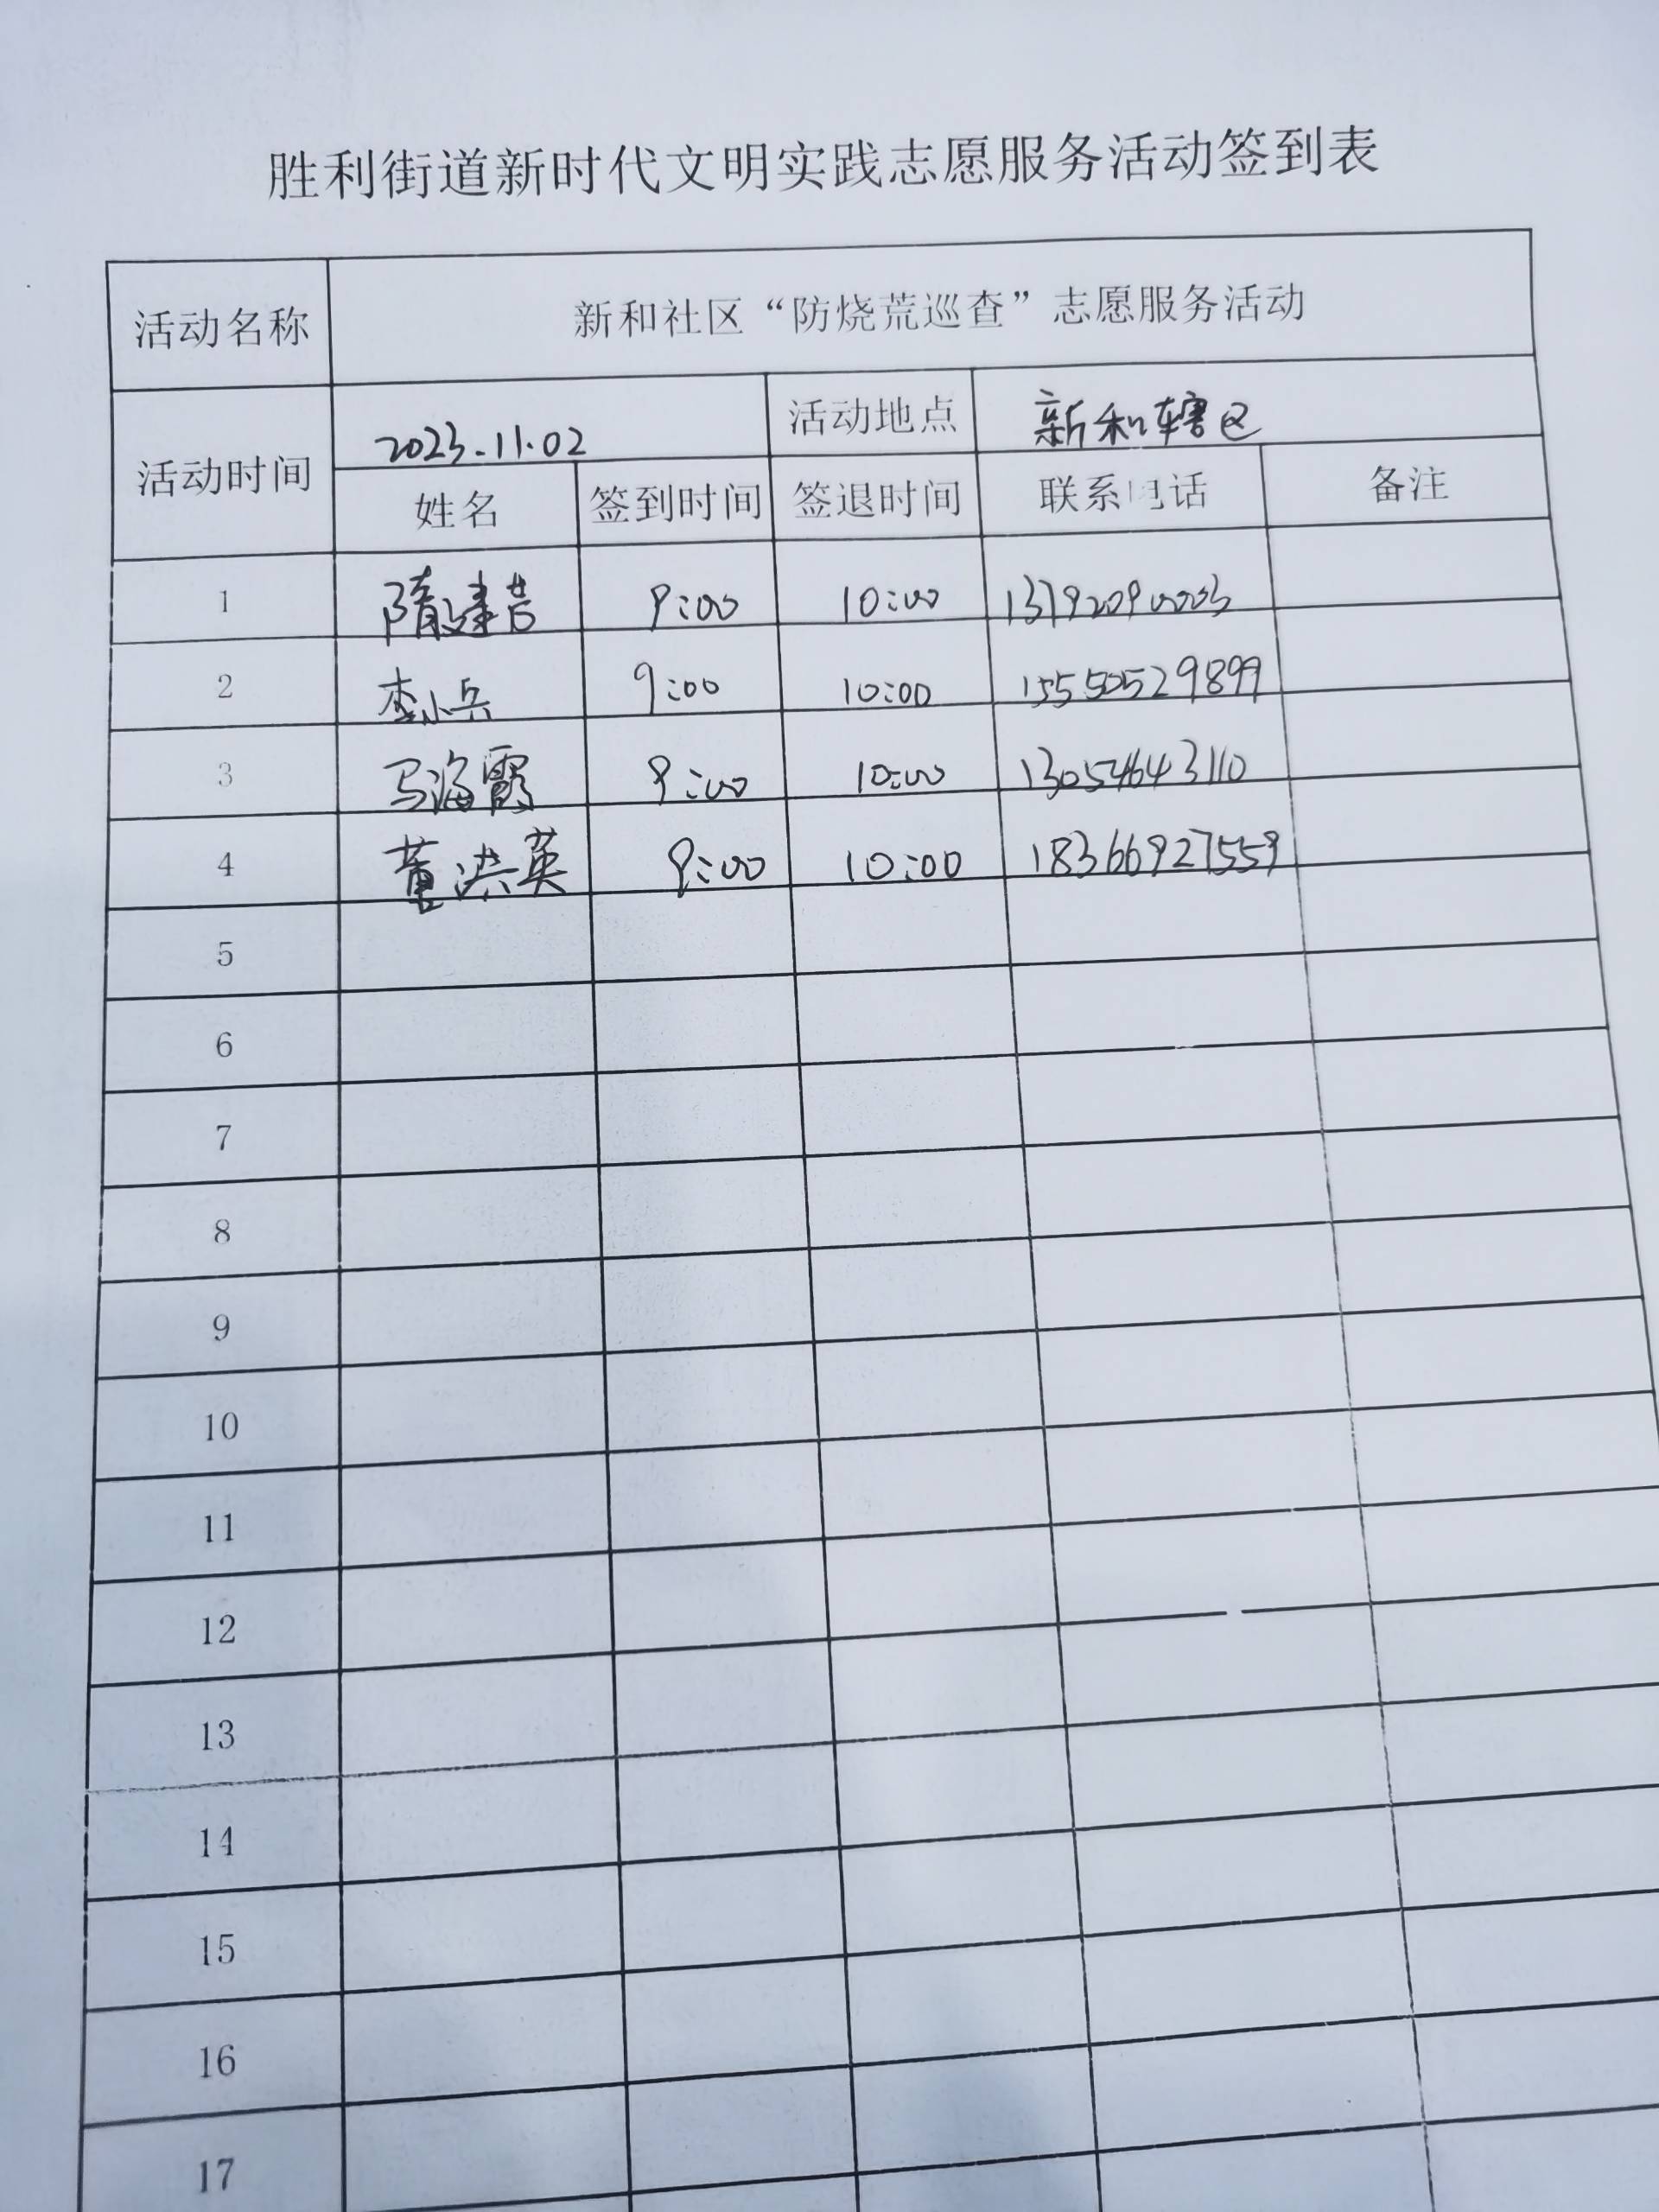 胜利街道新时代文明实践志愿服务活动签到表
活动名称 新和社区“防烧荒巡查”志愿服务活动
活动时间 2023.11.02 活动地点 新和辖区
姓名 签到时间 签退时间 联系电话 备注
1 隋建 9:00 10:00
2 李小兵 9:00 10:00 15550529899
3 马海霞 9:00 10:00 13054643110
4 董洪英 9:00 10:00 18366927559
5
6
7
8
9
10
11
12
13
14
15
16
17